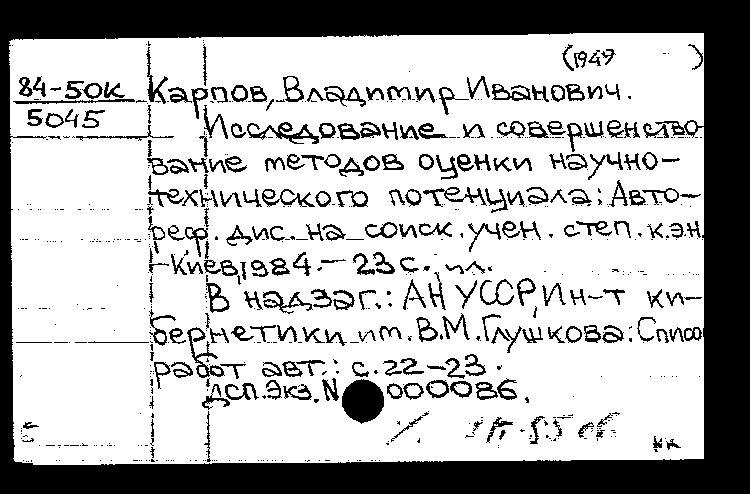 (1949 )
84-50К Карпов, Владимир Иванович.
5045
Исследование и совершенство-
вание методов оценки научно-
технического потенциала: Авто-
реф. дис. на соиск. учен. степ. к.эн.
-Киев, 1984.- 23 с., ил.
В надзаг.: АН УССР, Ин-т ки-
бернетики им. В.М. Глушкова: Списо
работ авт.: с. 22-23.
ДСП. Экз. N 000086.